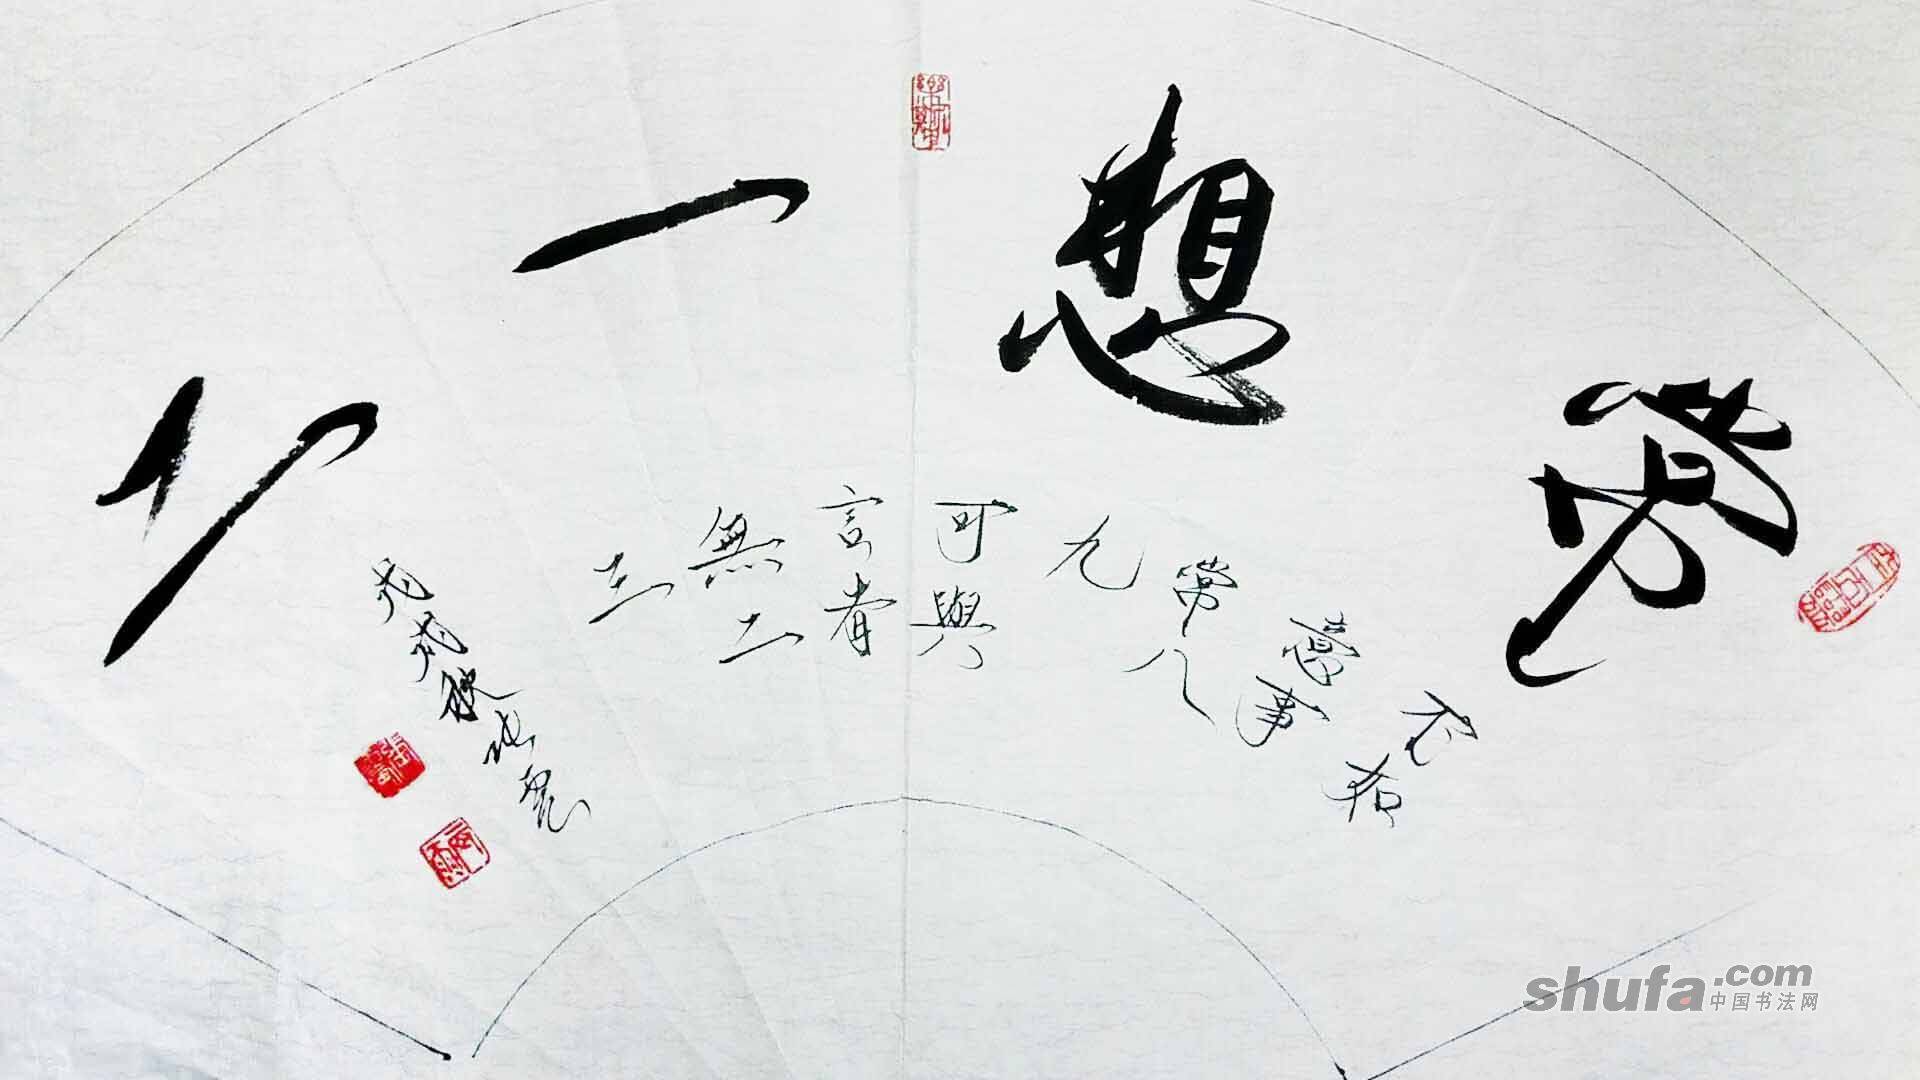 常想一二
不如
意事
常八
九
可與
言者
無二
三
戊戌秋
shufa.com
中国书法网